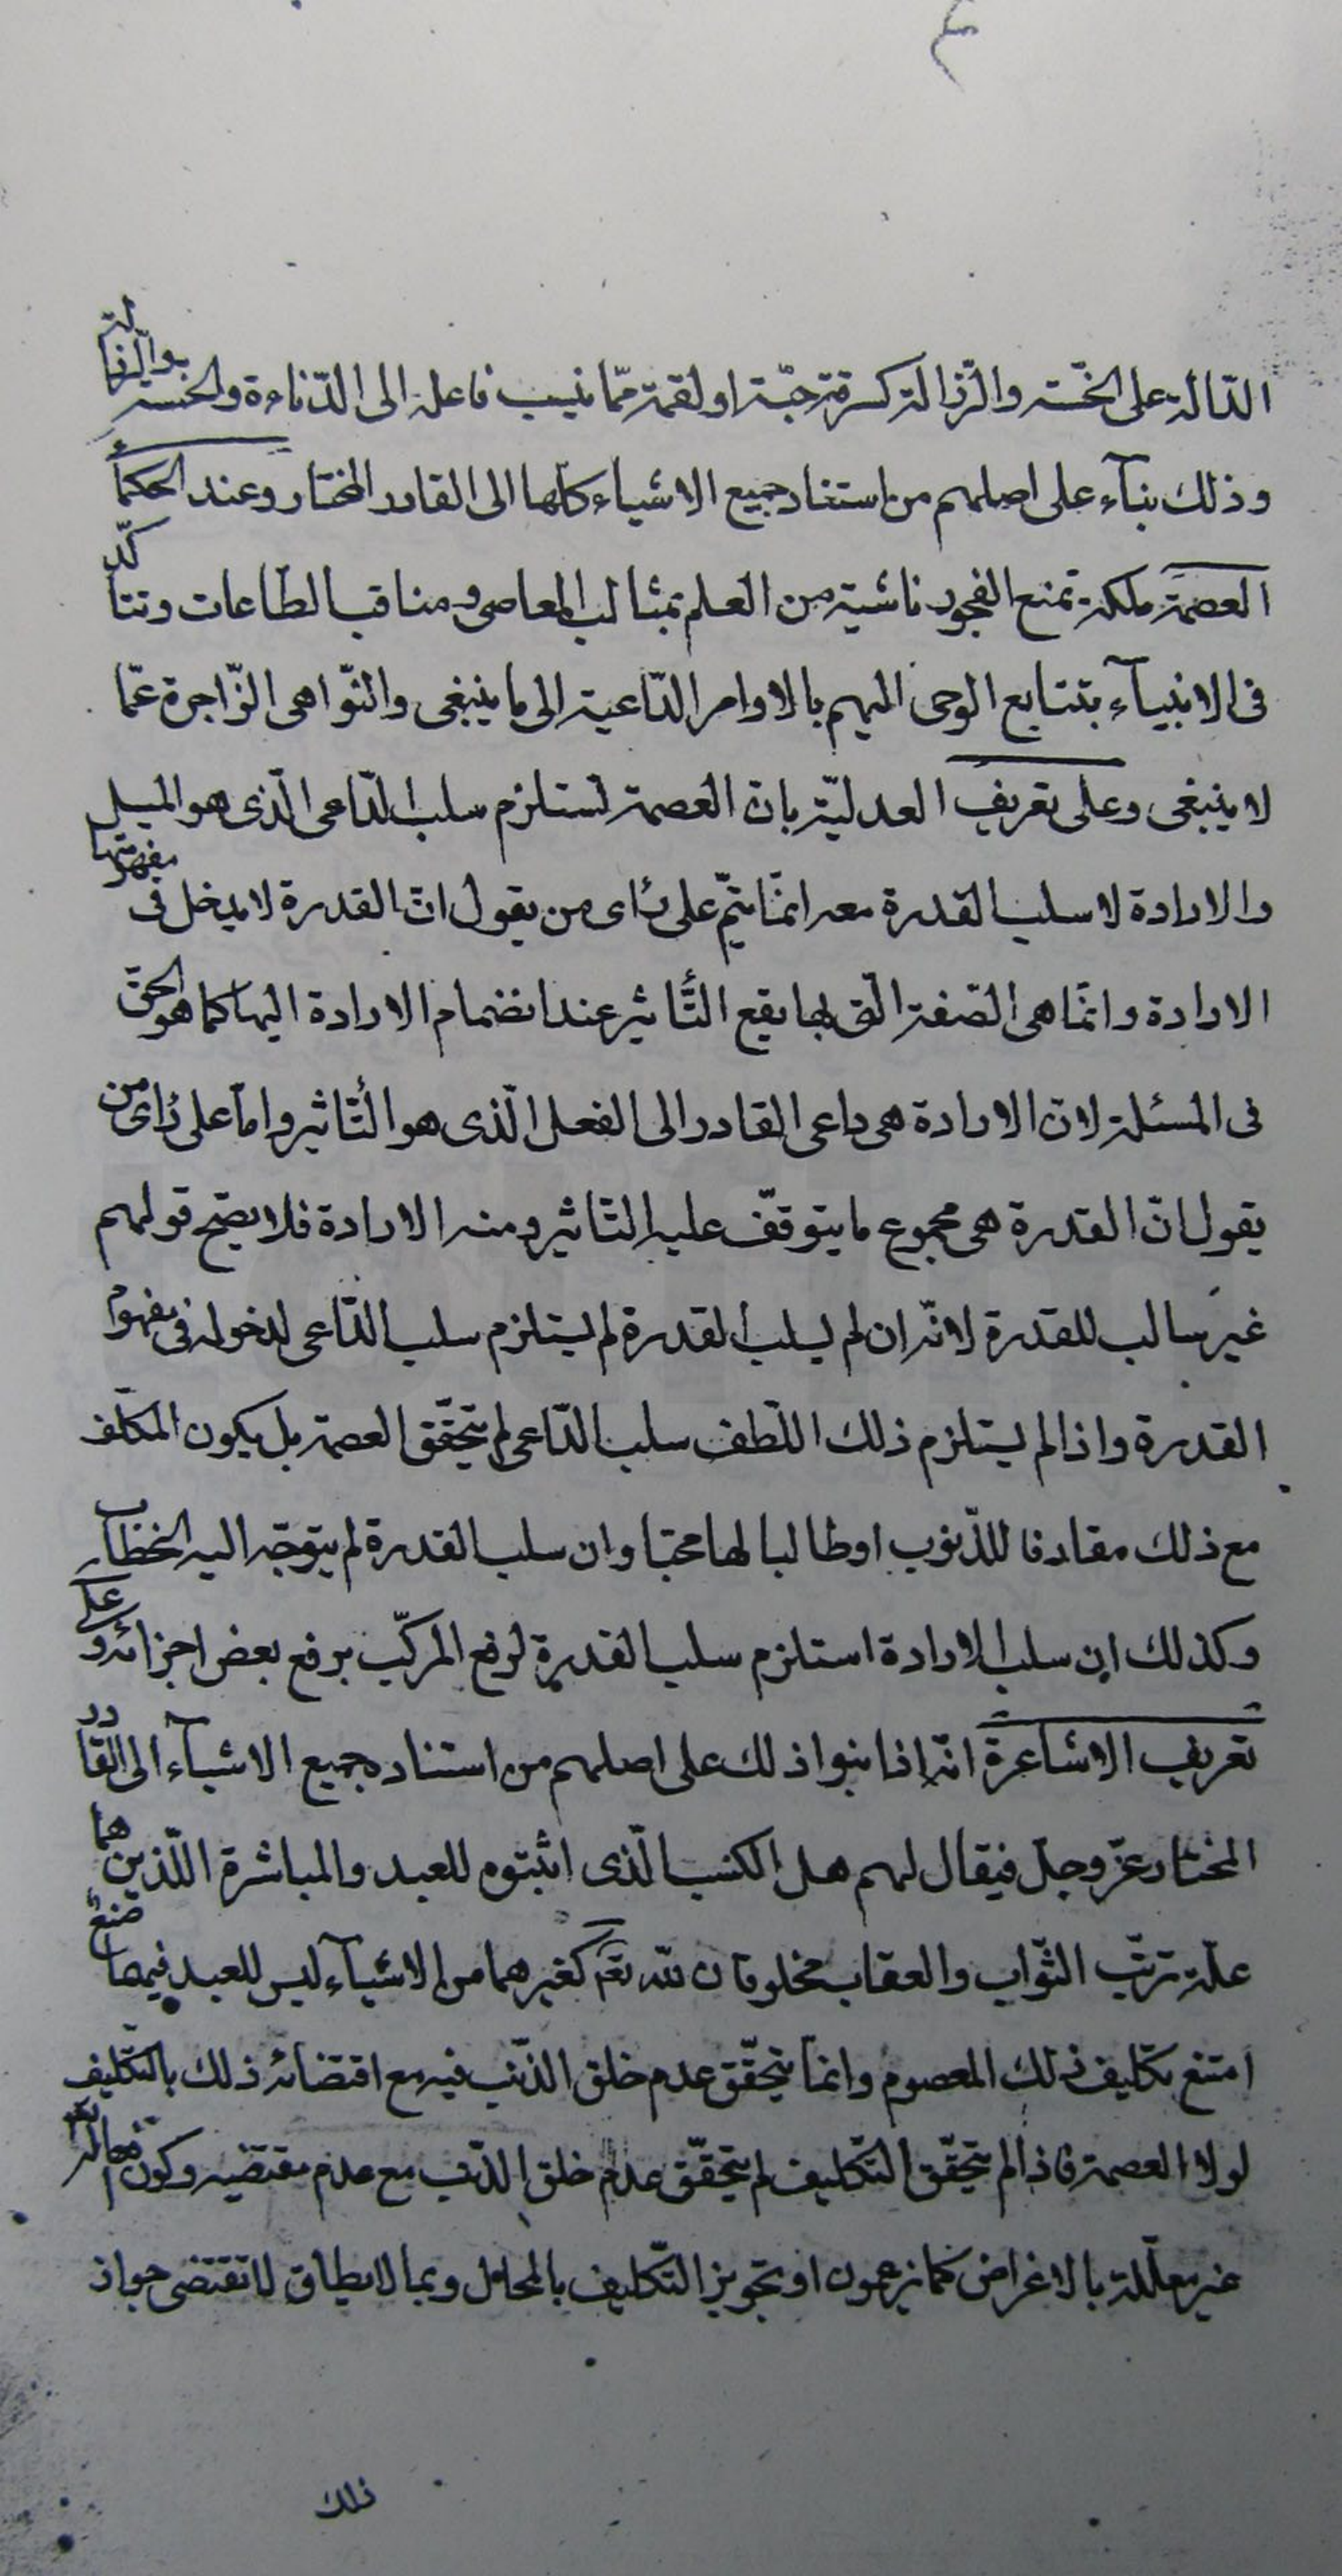 ٤
الدّالة على الخسّة والرّذالة كسرقة حبّة او لقمة ممّا ينسب فاعله الى الدّناءة والخسة والرّذالة
وذلك بنآء على اصلهم من استناد جميع الاشياء كلّها الى القادر المختار وعند الحكمآء
العصمة ملكة تمنع الفجور ناشية من العلم بمثالب المعاصى ومناقب الطّاعات وتتأكّد
فى الانبيآء بتتابع الوحى اليهم بالاوامر الدّاعية الى ما ينبغى والنّواهى الزّاجرة عمّا
لا ينبغى وعلى تعريف العدليّة بان العصمة تستلزم سلب الدّاعى الّذى هو الميل
والارادة لا سلب القدرة معه انمّا يتمّ على رأى من يقول انّ القدرة لا يدخل فى مفهومها
الارادة وانمّا هى الصّفة الّتى بها يقع التّأثير عند انضمام الارادة اليها كما هو الحقّ
فى المسئلة لانّ الارادة هى داعى القادر الى الفعل الّذى هو التّأثير وامّا على رأى من
يقول انّ القدرة هى مجموع ما يتوقّف عليه التّاثير ومنه الارادة فلا يصحّ قولهم
غير سالب للقدرة لانّه ان لم يسلب القدرة لم يستلزم سلب الدّاعى لدخوله فى مفهوم
القدرة واذا لم يستلزم ذلك اللّطف سلب الدّاعى لم يتحقّق العصمة بل يكون المكلّف
مع ذلك مقارفا للذّنوب او طالبا لها محبّا وان سلب القدرة لم يتوجّه اليه الخطاب
وكذلك ان سلب الارادة استلزم سلب القدرة لرفع المركّب برفع بعض اجزائه وعلى
تعريف الاشاعرة انّه اذا بنوا ذلك على اصلهم من استناد جميع الاشيآء الى القادر
المختار عزّ وجلّ فيقال لهم هل الكسب الّذى اثبتوه للعبد والمباشرة اللّذين هما
علّة ترتّب الثّواب والعقاب مخلوقان للّه تعَ كغيرهما من الاشيآء ليس للعبد فيهما صنع
امتنع تكليف ذلك المعصوم وانمّا يتحقّق عدم خلق الذّنب فيه مع اقتضائه ذلك بالتّكليف
لولا العصمة فاذا لم يتحقّق التّكليف لم يتحقّق عدم خلق الذّنب مع عدم مقتضيه وكون افعاله تعَ
غير معلّلة بالاغراض كما يزعمون او تجويز التّكليف بالمحال وبما لا يطاق لا تقتضى جواز
ذلك